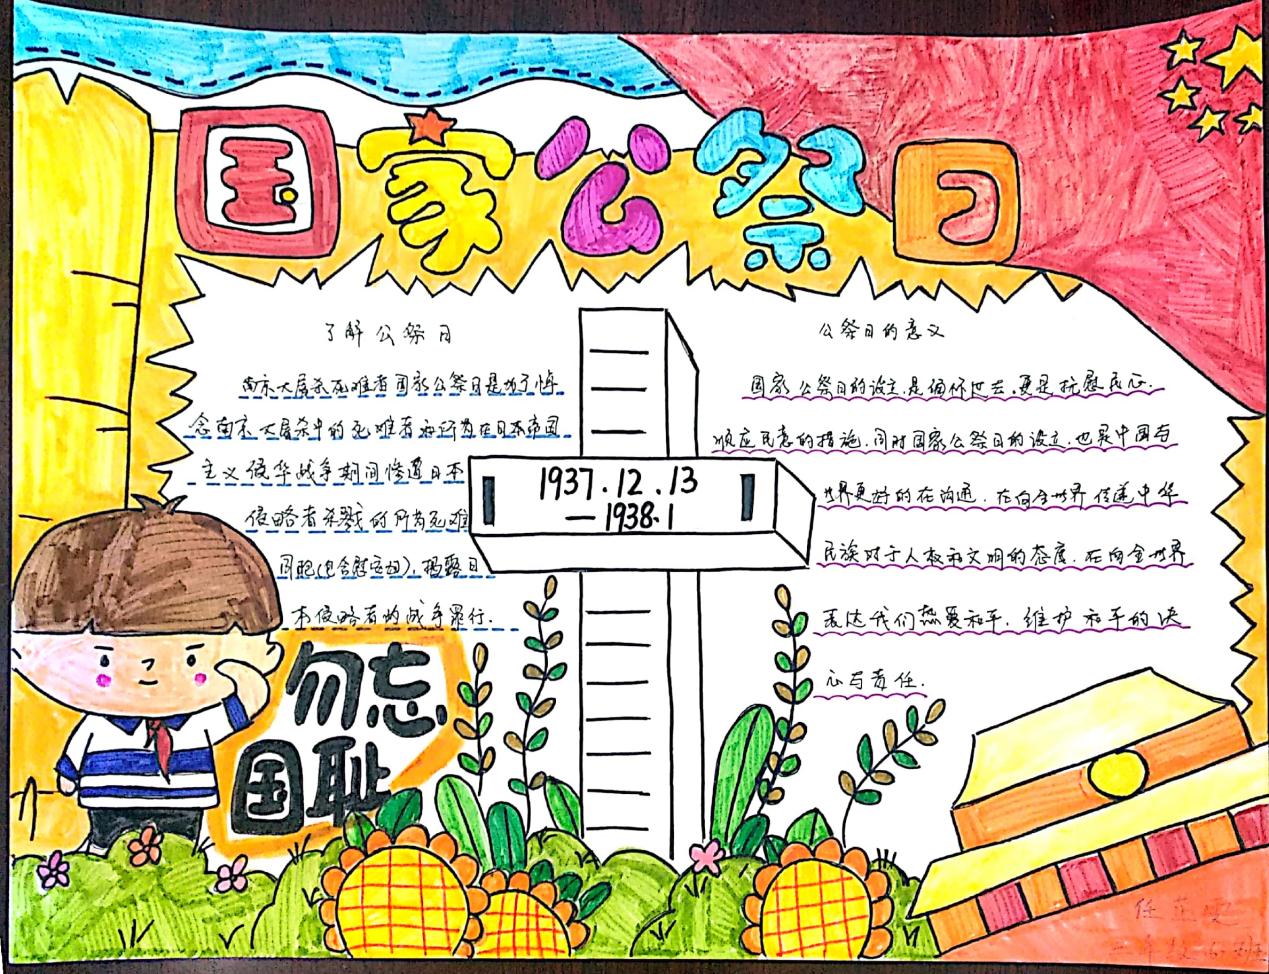 国家公祭日
了解公祭日
南京大屠杀死难者国家公祭日是为了悼
念南京大屠杀中的死难者和所有在日本帝国
主义侵华战争期间惨遭日本
侵略者杀戮的所有死难
同胞(包含慰安妇),揭露日
本侵略者的战争罪行.
公祭日的意义
国家公祭日的设立,是缅怀过去.更是抚慰民心.
顺应民意的措施.同时国家公祭日的设立,也是中国与
世界更好的在沟通.在向全世界传递中华
民族对于人权和文明的态度.在向全世界
表达我们热爱和平,维护和平的决
心与责任.
1937.12.13
—1938.1
勿忘
国耻
任
班